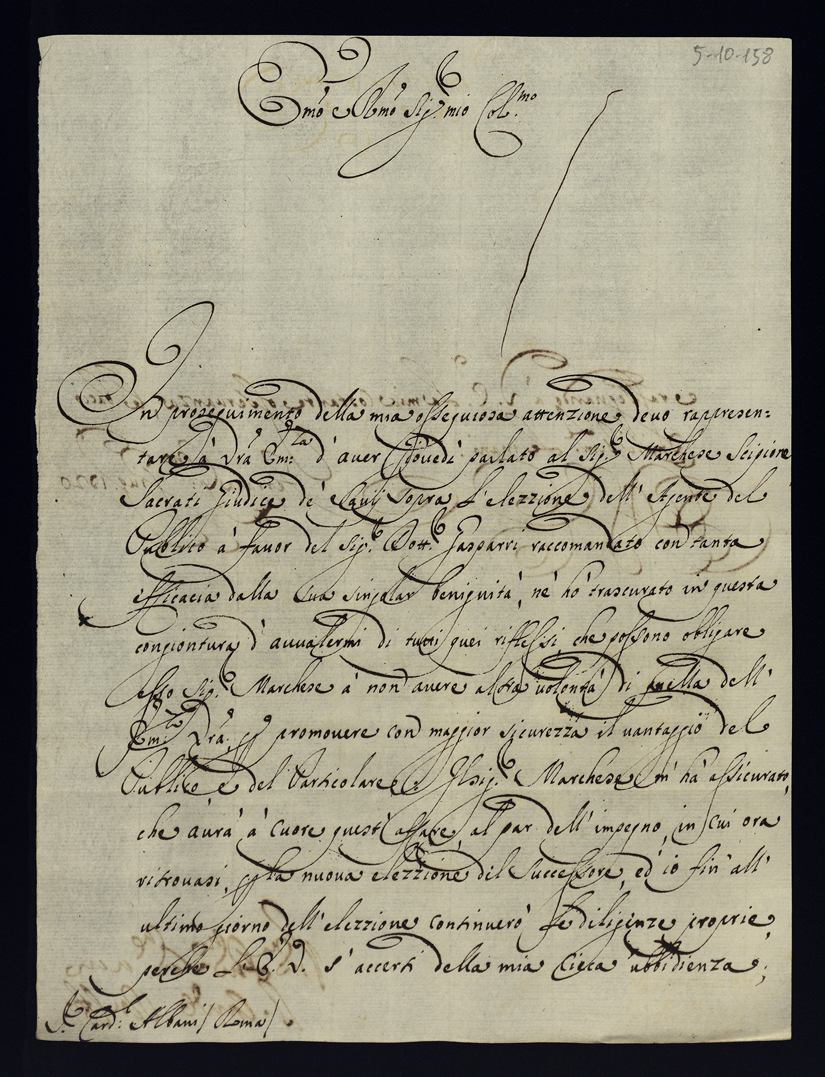 5-10-158
Em̃o e Rm̃o Sig.r mio Col.mo
In proseguimento della mia ossequiosa attenzione devo rappresen=
tare à Vr̃a Em.za d'aver Giovedì parlato al Sig.r Marchese Scipione
Sacrati Giudice de' Savij sopra l'elezzione dell'Agente del
Publico à favor del Sig.r Dott.r Gasparri raccomandato con tanta
efficacia dalla sua singolar benignità, nè hò trascurato in questa
congiontura d'avvalermi di tutti quei riflessi, che possono obligare
esso Sig.r Marchese à non avere altra volontà di quella dell'
Em.za Vr̃a, p promovere con maggior sicurezza il vantaggio del
Publico e del Particolare. Il Sig.r Marchese m'hà assicurato,
che aurà à cuore quest'affare, al par dell'impegno, in cui ora
ritrovasi, p la nuova elezzione del Successore, ed io fin'all'
ultimo giorno dell'elezzione continuerò le diligenze proprie,
perche L'E. V. s'accerti della mia cieca ubbidienza;
S.r Card.l Albani / Roma /